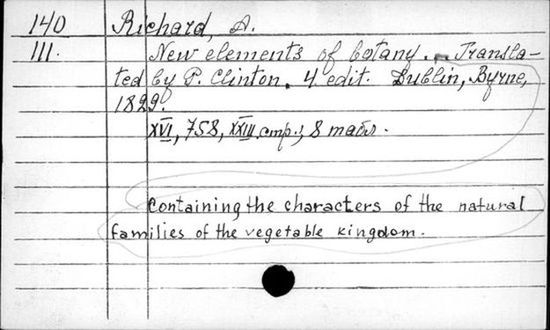 140 Richard, A.
111. New elements of botany. - Transla-
ted by P. Clinton. 4 edit. Dublin, Byrne,
1829.
XVI, 758, XXIII стр., 8 табл.
Containing the characters of the natural
families of the vegetable kingdom.